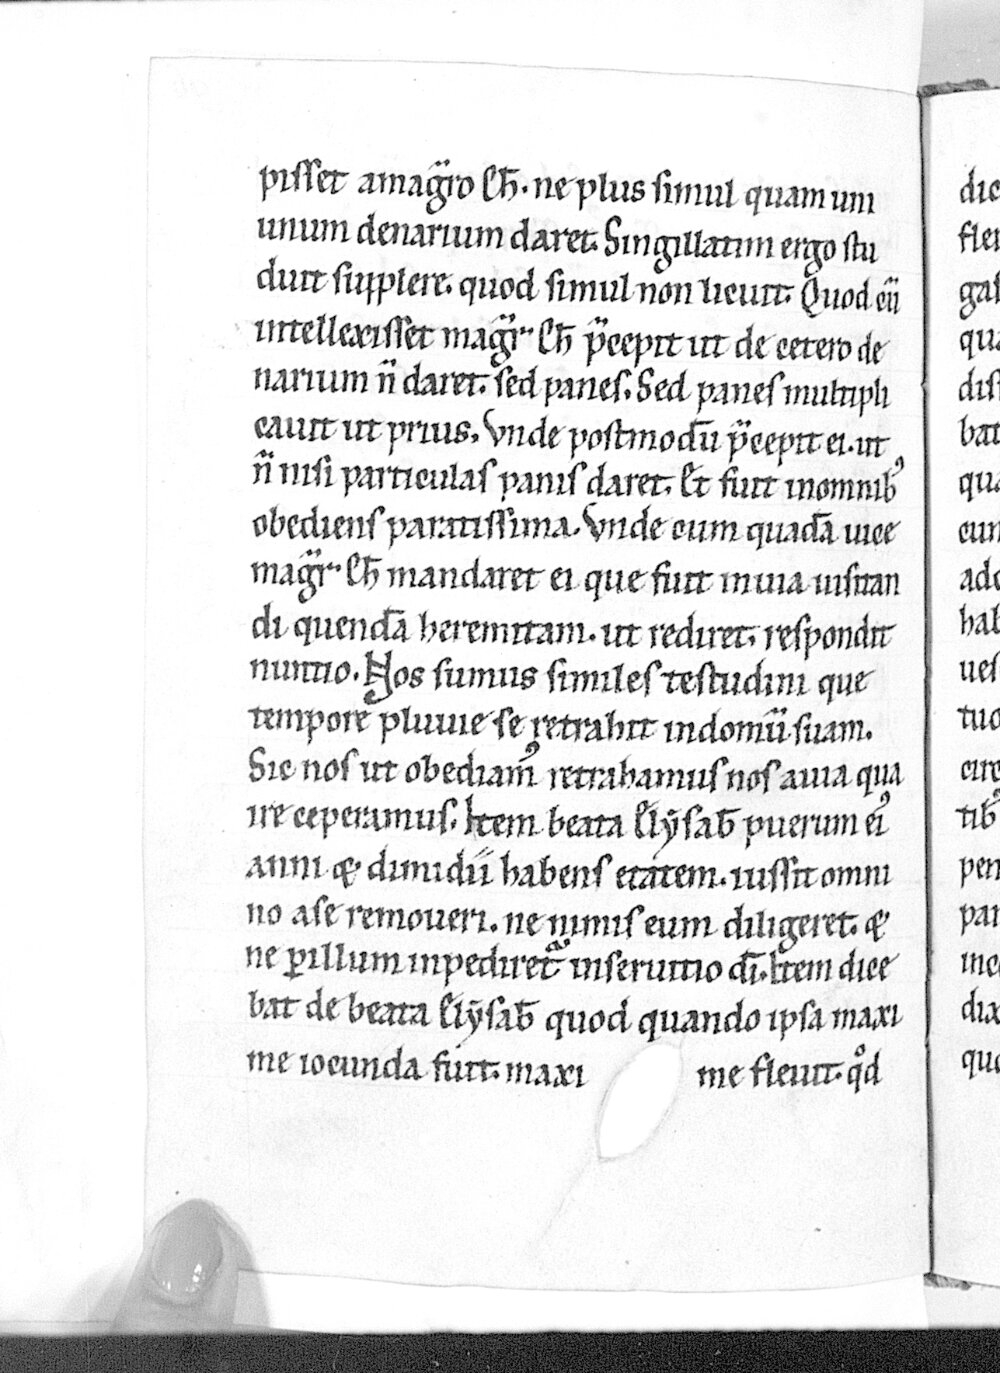 pisset a mag̃ro Ch̄. ne plus simul quam uni
unum denarium daret. Singillatim ergo stu
duit supplere. quod simul non licuit. Quod cũ
intellexisset mag̃r Ch̄ p̃cepit ut de cetero de
narium ñ daret. sed panes. Sed panes multipli
cauit ut prius. Vnde postmodū p̃cepit ei. ut
ñ nisi particulas panis daret. Et fuit in omnibꝰ
obediens paratissima. Vnde cum quadā uice
mag̃r Ch̄ mandaret ei que fuit in uia uisitan
di quendā heremitam. ut rediret. respondit
nuntio. Nos sumus similes testudini que
tempore pluuie se retrahit in domū suam.
Sic nos ut obediamꝰ retrahamus nos a uia qua
ire ceperamus. Item beata Elẏsab̄ puerum eiꝰ
anni & dimidii habens etatem. iussit omni
no a se remoueri. ne nimis eum diligeret. &
ne ꝑ illum inpediretᷓ in seruitio dī. Item dice
bat de beata Elẏsab̄ quod quando ipsa maxi
me iocunda fuit. maxi me fleuit. qͦd
dic
flei
gas
qua
dis
bat
qua
cun
ado
hab
ues
tuo
circ
tibꝰ
pen
par
inc
dix
quo